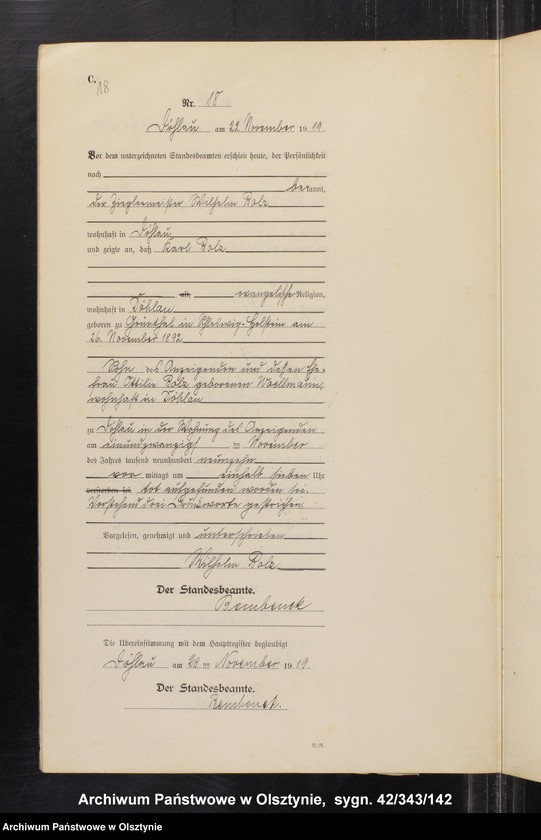 C.
18
Nr. 18
Döhlau am 22 November 1919.
Vor dem unterzeichneten Standesbeamten erschien heute, der Persönlichkeit
nach
bekannt,
der Zieglermeister Wilhelm Bolz
wohnhaft in Döhlau
und zeigte an, daß Karl Bolz
alt, evangelische Religion,
wohnhaft in Döhlau
geboren zu Grünthal in Schleswig-Holstein am
26. November 1892
Sohn des Anzeigenden und dessen Ehe-
frau Ottilie Bolz geborenen
wohnhaft in Döhlau
zu Döhlau in der Wohnung des Anzeigenden
am einundzwanzigs ten November
des Jahres tausend neunhundert neunzehn
vor mittags um einhalb sieben Uhr
verstorben sei. tot aufgefunden worden sei.
Vorstehend drei Druckworte gestrichen.
Vorgelesen, genehmigt und unterschrieben
Wilhelm Bolz
Der Standesbeamte.
Bembenek
Die Übereinstimmung mit dem Hauptregister beglaubigt
Döhlau am 23 ten November 1919.
Der Standesbeamte.
Bembenek.
Archiwum Państwowe w Olsztynie, sygn. 42/343/142
Archiwum Państwowe w Olsztynie